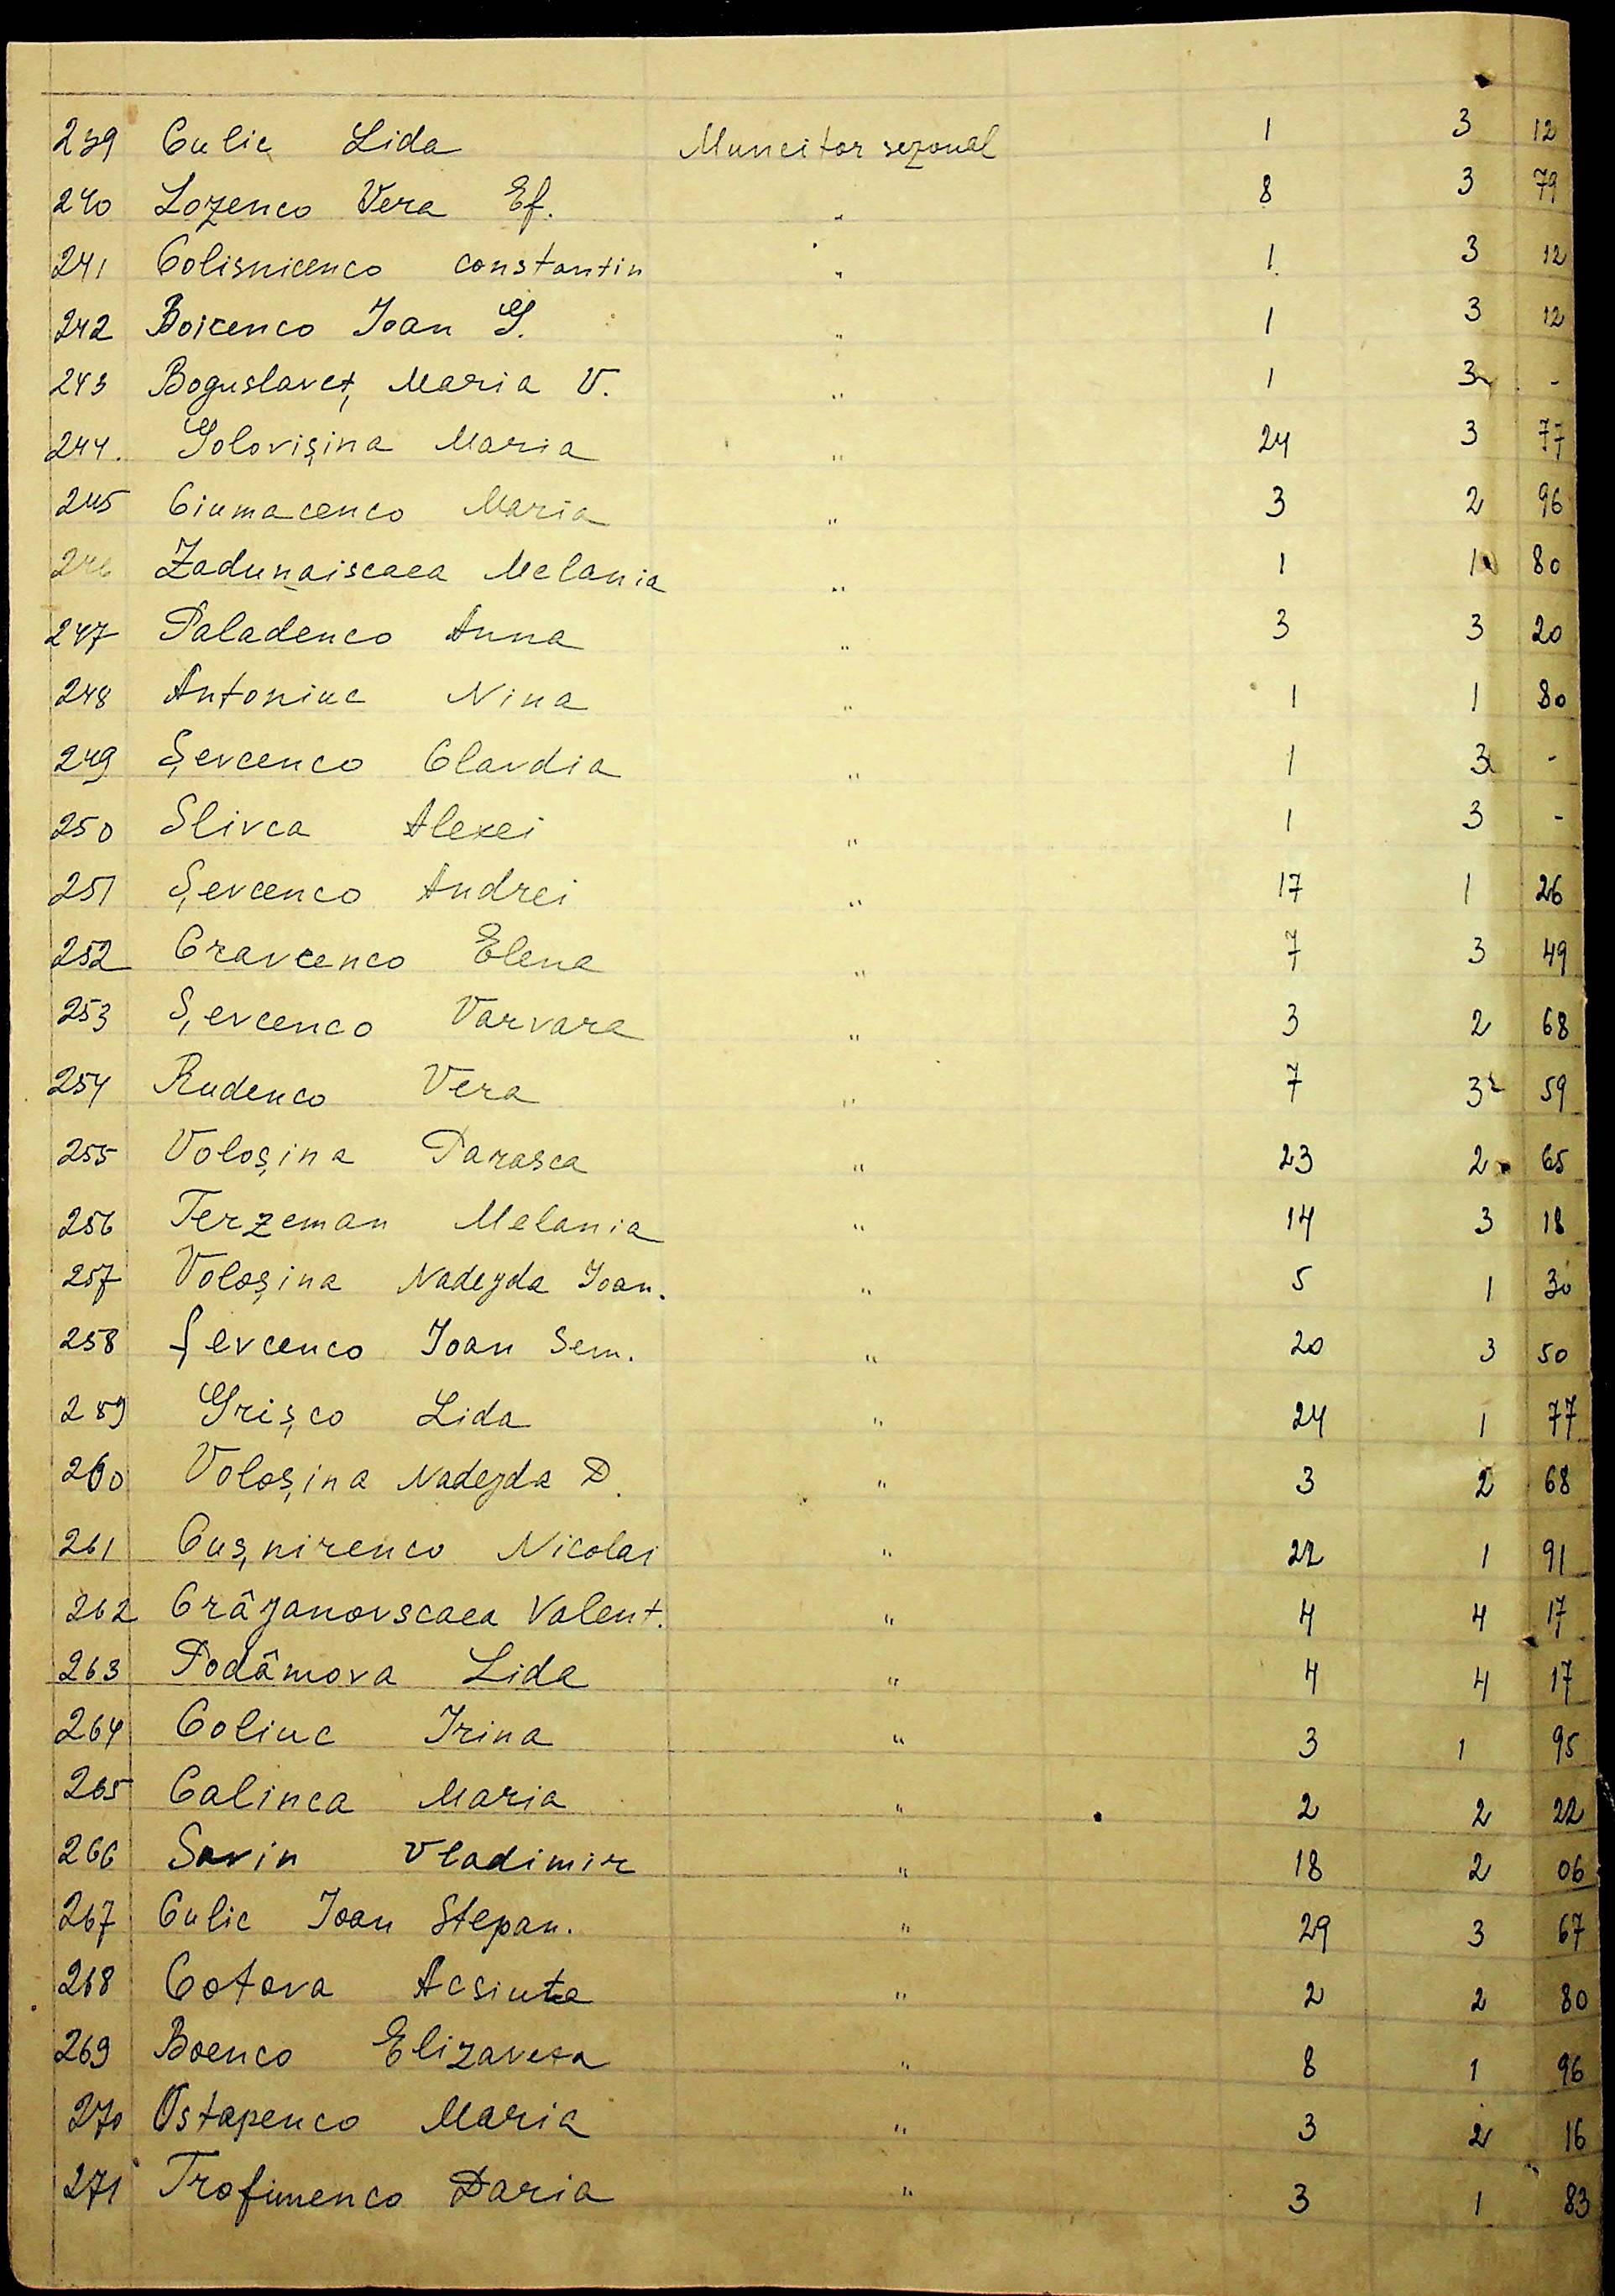 239 Culic Lida Muncitor sezonal 1 3 12
240 Lozenco Vera Ef. " 8 3 79
241 Colisnicenco Constantin " 1 3 12
242 Boicenco Ioan G. " 1 3 12
243 Boguslaveț Maria V. " 1 3 -
244. Golovișina Maria " 24 3 77
245 Ciumacenco Maria " 3 2 96
246 Zadunaiscaea Melania " 1 1 80
247 Paladenco Anna " 3 3 20
248 Antoniuc Nina " 1 1 80
249 Șevcenco Clavdia " 1 3 -
250 Slivca Alexei " 1 3 -
251 Șevcenco Andrei " 17 1 26
252 Cravcenco Elena " 7 3 49
253 Șevcenco Varvara " 3 2 68
254 Rudenco Vera " 7 3 59
255 Voloșina Parasca " 23 2 65
256 Terzeman Melania " 14 3 18
257 Voloșina Nadejda Ioan. " 5 1 30
258 Șevcenco Ioan Sem. " 20 3 50
259 Grișco Lida " 24 1 77
260 Voloșina Nadejda D. " 3 2 68
261 Cușnirenco Nicolai " 22 1 91
262 Crâjanovscaea Valent. " 4 4 17
263 Podâmova Lida " 4 4 17
264 Coliuc Irina " 3 1 95
265 Calinca Maria " 2 2 22
266 Savin Vladimir " 18 2 06
267 Culic Ioan Stepan. " 29 3 67
268 Cotova Acsiuta " 2 2 80
269 Boenco Elizaveta " 8 1 96
270 Ostapenco Maria " 3 2 16
271 Trofimenco Daria " 3 1 83